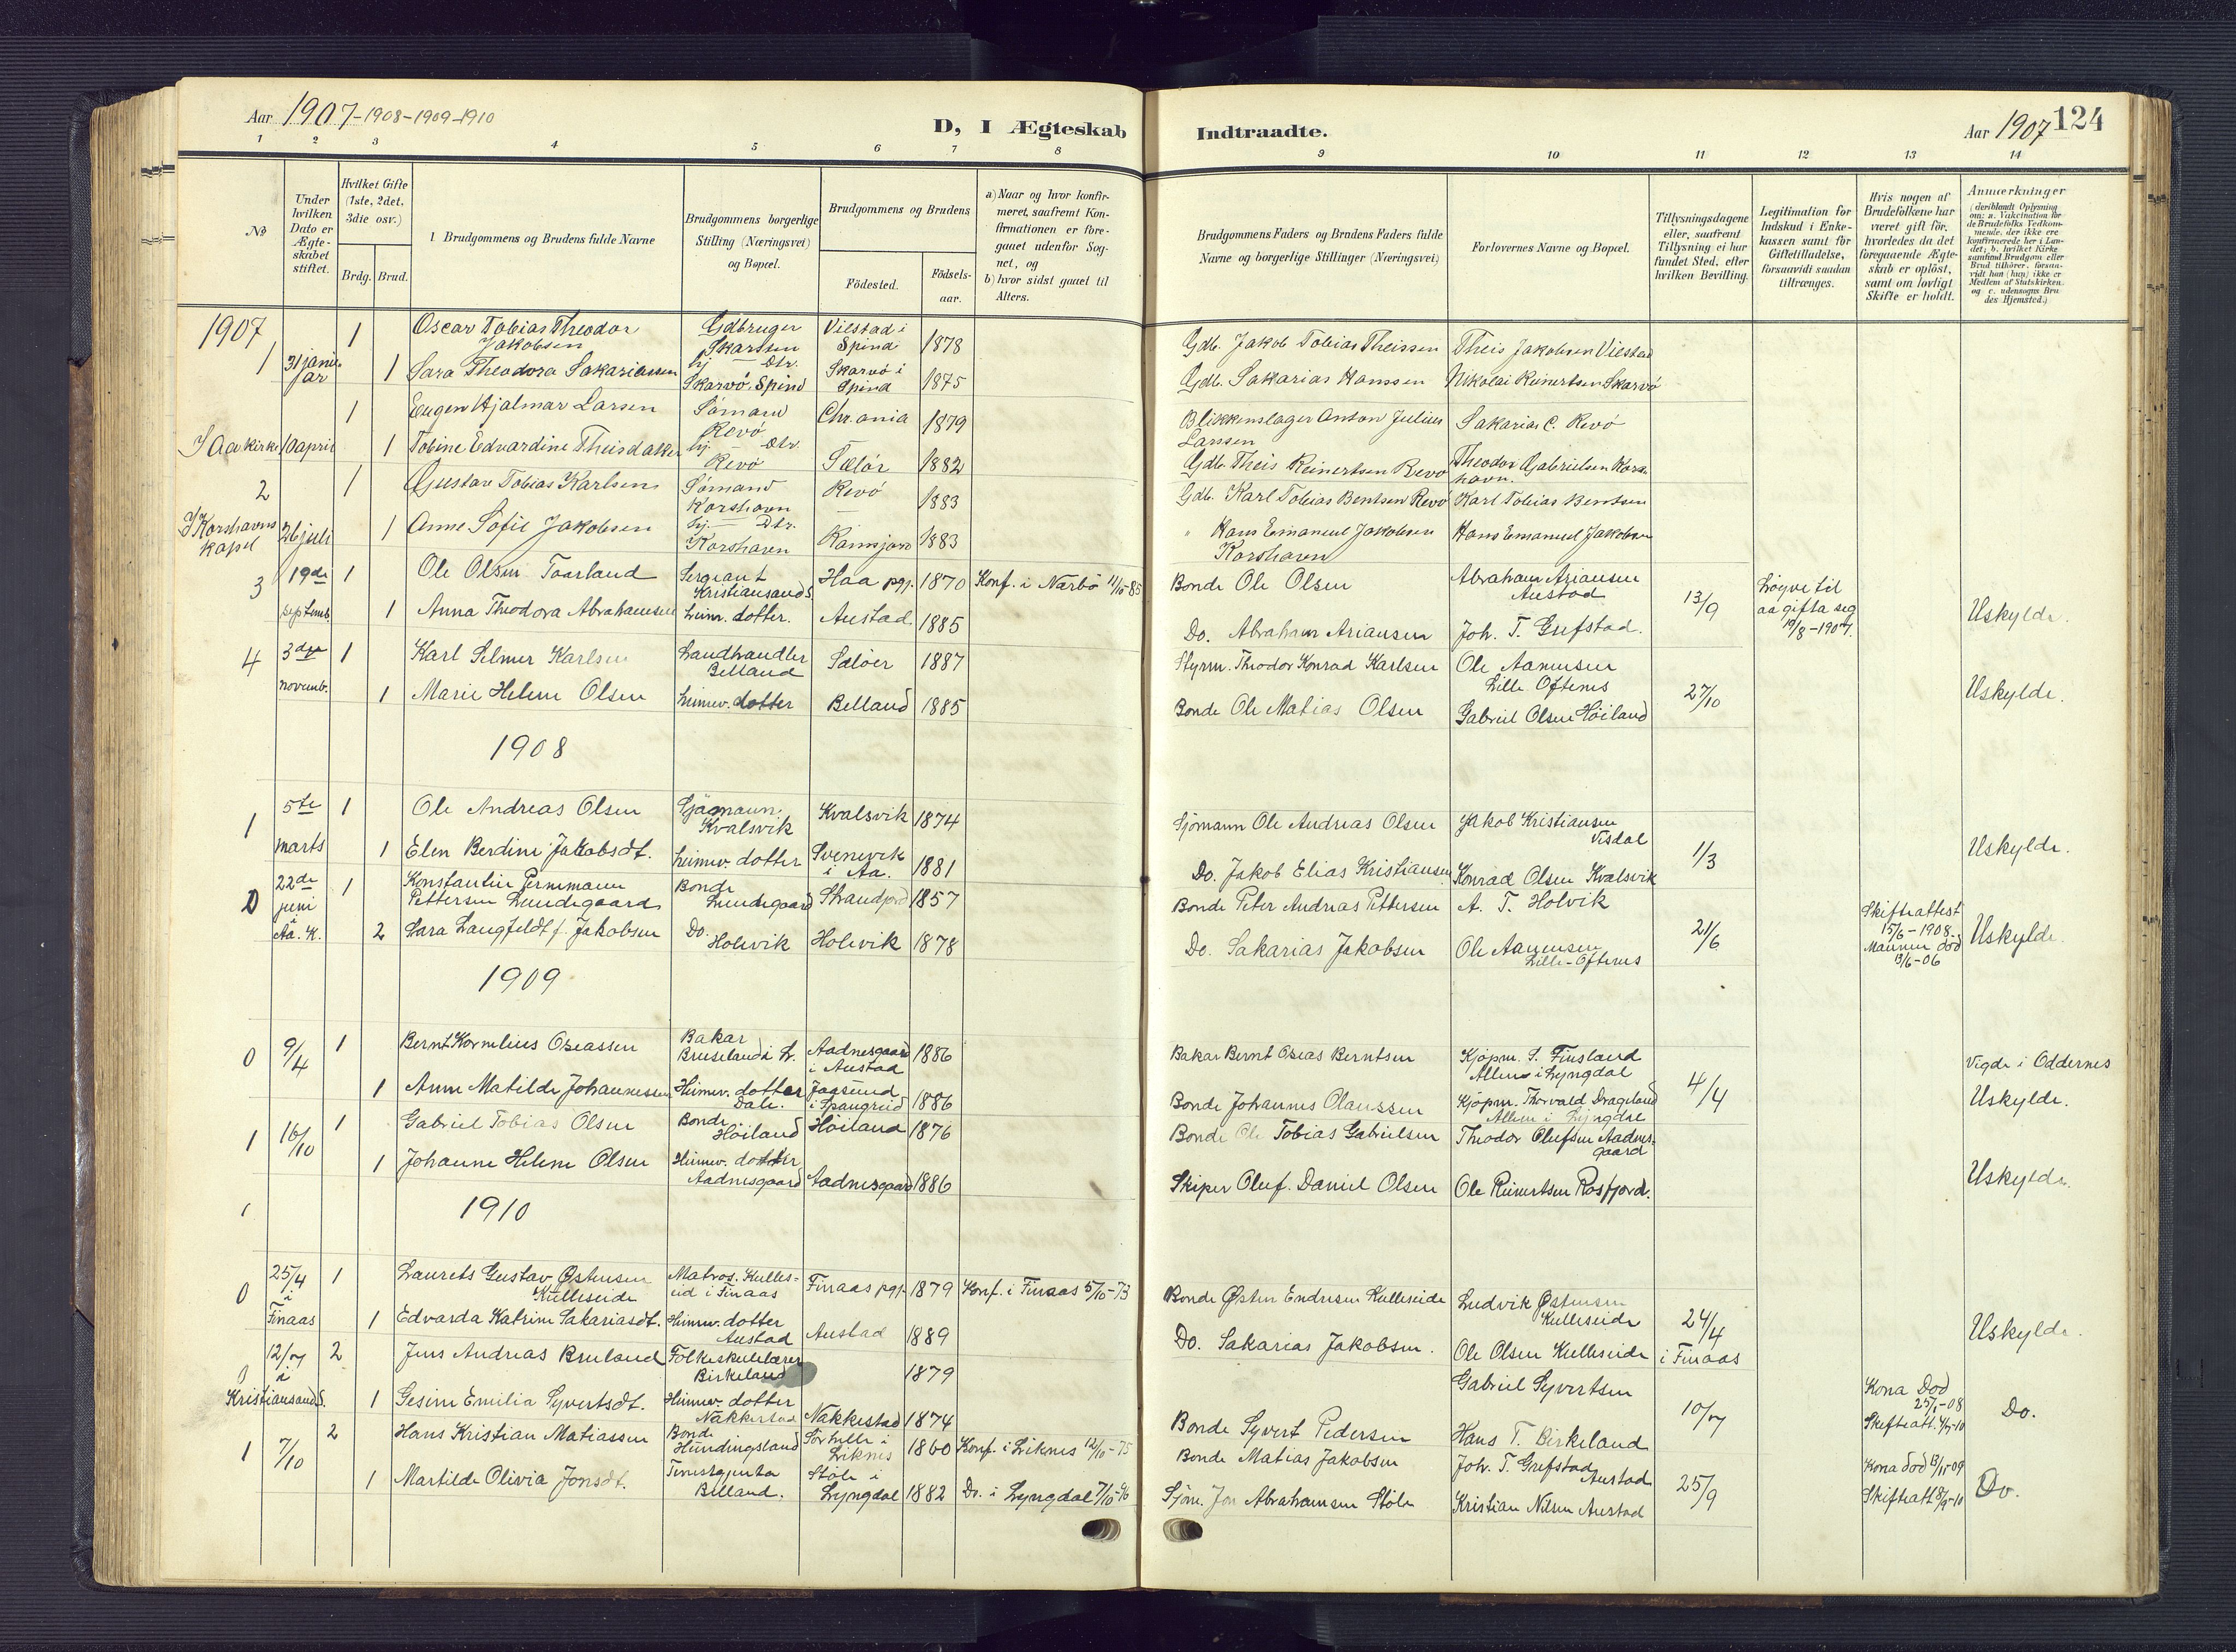 Aar 1907-1908-1909-1910
D, I Ægteskab
Indtraadte.
Aar 1907
124
1 2 3 4 5 6 7 8
9 10 11 12 13 14
No
Under hvilken Dato er Ægte-skabet stiftet.
Hvilket Gifte (1ste, 2det, 3die osv.)
Brdg. Brud.
Brudgommens og Brudens fulde Navne
Brudgommens borgerlige Stilling (Næringsvei) og Bopæl.
Brudgommens og Brudens
Fødested.
Fødsels-aar.
a) Naar og hvor konfir-meret, saafremt Kon-firmationen er fore-gaaet udenfor Sog-net, og
b) hvor sidst gaaet til Alters.
Brudgommens Faders og Brudens Faders fulde Navne og borgerlige Stillinger (Næringsvei)
Forlovernes Navne og Bopæl.
Tillysningsdagene eller, saafremt Tillysning ei har fundet Sted, efter hvilken Bevilling.
Legitimation for Indskud i Enke-kassen samt for Giftetilladelse, forsaavidt saadan tiltrænges.
Hvis nogen af Brudefolkene har været gift før, hvorledes da det foregaaende Ægte-skab er opløst, samt om lovligt Skifte er holdt.
Anmærkninger (deriblandt Oplysning om: a. Vakcination for de Brudefolks Vedkom-mende, der ikke ere konfirmerede her i Lan-det; b. hvilket Kirke-samfund Brudgom eller Brud tilhører, forsaa-vidt han (hun) ikke er Medlem af Statskirken, og c. udensogns Bru-des Hjemsted.)
1907
1 Oscar Tobias Theodor Jakobsen Gdbruger Skarssen Vilstad i Spind 1878 Gdb. Jakob Tobias Theissen Theis Jakobsen Vilstad
1 31 januar 1 Sara Theodora Sakariassen hj. Dtr. Skarvö. Spind Skarvö i Spind 1875 Gdb. Sakarias Hanssen Nikolai Reinertsen Skarvö
1 Eugen Hjalmar Larsen Sömand Revö Chr.ania 1879 Blikkenslager Anton Julius Larssen Sakarias C. Revö
I Aa kirke 10 april 1 Tobine Edvardine Theisdatter hj. Dtr. Revö Sælör 1882 Gdb. Theis Reinertsen Revö Theodor Gabrielsen Korshavn.
2 1 Gustav Tobias Karlsen Sömand Korshavn Revö 1883 Gdb. Karl Tobias Bentsen Revö Karl Tobias Bentsen
I Korshavns kapel 26 juli 1 Anne Sofie Jakobsen hj. Dtr. Korshavn 1883 " Hans Emanuel Jakobsen Korshavn Hans Emanuel Jakobsen
3 19de 1 Ole Olsen Taarland Sergeant Kristiansands Haa pgj. 1870 Konf. i Nærbö 11/10-85 Bonde Ole Olsen Abraham Ariansen Austad 13/9 Løyve til aa gifta seg 19/8-1907.
septemb. 1 Anna Theodora Abrahamsen heim. dotter. Austad 1885 Do. Abraham Ariansen Joh. T. Grefstad. Uskylde.
4 3dje 1 Karl Selmer Karlsen Landhandler Belland Sælöer 1887 Styrm. Theodor Konrad Karlsen Ole Aanensen Lille Oftenes 27/10
novemb. 1 Marie Helene Olsen heimev. dotter Belland 1885 Bonde Ole Matias Olsen Gabriel Olsen Höiland Uskylde.
1908
1 5te 1 Ole Andreas Olsen Sjömann. Kvalsvik Kvalsvik 1874 Sjömann Ole Andreas Olsen Jakob Kristiansen Visdal 1/3
marts 1 Elen Berdine Jakobsdt. heimev dotter Svenevik i Aa. 1881 Do. Jakob Elias Kristiansen Konrad Olsen Kvalsvik Uskylde.
22de juni i Aa. K. 1 Konstantin Pettersen Lundegaard Bonde Lundegaard 1857 Bonde Peter Andreas Pettersen A. T. Holvik 21/6 Skifteattest 15/6-1908 Mannen död 13/6-06
2 Sara Langfeldt f. Jakobsen Do. Holevik Holevik 1878 Do. Sakarias Jakobsen Ole Aanensen Lille-Oftenes Uskylde.
1909
0 9/4 1 Bernt Kornelius Oseassen Bakar Bruseland i L. Aadnesgaard i Austad 1886 Bakar Bernt Oseas Berntsen Kjöpm. S. Finsland Alleen i Lyngdal 4/4 Vigde i Oddernes
1 Anne Matilde Johannessen Heimev. dotter Dale. Jaasund i Spangreid 1886 Bonde Johannes Olaussen Kjöpm. Thorvald Drageland Alleen i Lyngdal Uskylde.
1 16/10 1 Gabriel Tobias Olsen Bonde Höiland Höiland 1876 Bonde Ole Tobias Gabrielsen Theodor Olufsen Aadnesgaard
1 Johanne Helene Olsen Heimev. dotter Aadnesgaard Aadnesgaard 1886 Skiper Oluf. Daniel Olsen Ole Reinertsen Rosfjord. Uskylde.
1910
0 25/4 i Finaas 1 Laurets Gustav Östensen Kulleseide Matros. Kulleseid i Finaas Finaas pgj. 1879 Konf. i Finaas 5/10-73 Bonde Østen Endresen Kulleseide Ludvik Østensen Kulleseide 24/4 i Finaas
1 Edvarda Katrine Sakariasdt. Heimev. dotter Austad Austad 1889 Do. Sakarias Jakobsen. Ole Olsen Kulleseide Uskylde.
12/7 i Kristiansands. 2 Jens Andreas Bruland Folkeskulelærer Birkeland 1879 Gabriel Syvertsen 10/7 Kona Död 25/1-08 Skifteatt. 4/7-10
1 Gesine Emilia Syvertsdt. Heimev. dotter Nakkestad Nakkestad 1874 Bonde Syvert Pedersen Hans T. Birkeland Do.
1 7/10 2 Hans Kristian Matiassen Bonde Hundingsland i Liknes 1860 Konf. i Liknes 12/10-75 Bonde Matias Jakobsen Joh. T. Grefstad Austad 25/9 Kona död 13/11-09 Skifteatt 8/9-10
1 Martilde Olivia Jonsdt. Tenestgjenta Belland. Stöle i Lyngdal 1882 Do. i Lyngdal 7/10-96 Sjöm. Jon Abrahamsen Stöle Kristian Nilsen Austad Do.